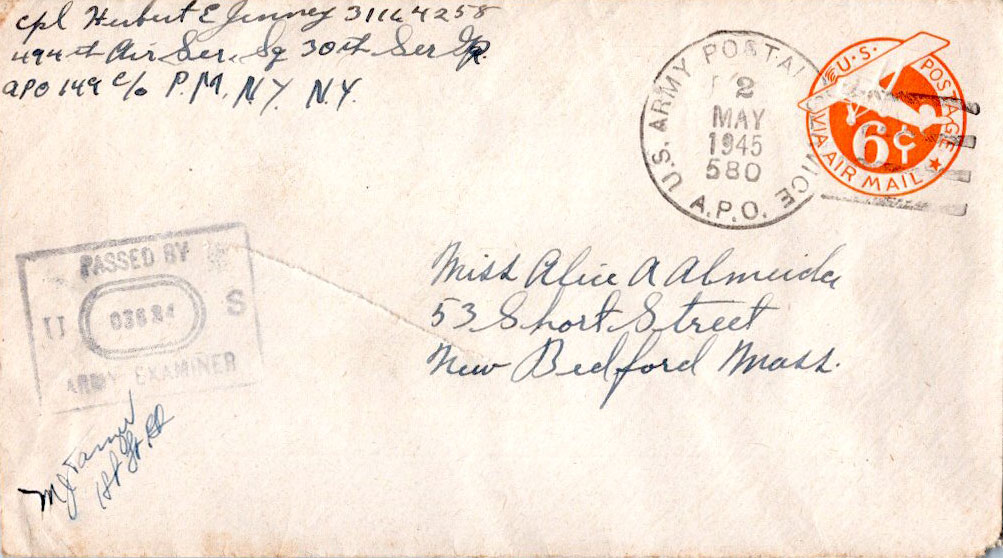 Cpl Herbert E Jenney 31164258
494th Air Ser. Sq 30th Ser Gp.
APO 149 c/o P.M. N.Y. N.Y.
U.S. ARMY POSTAL SERVICE
2
MAY
1945
580
A.P.O.
U.S. POSTAGE
6¢
VIA AIR MAIL
PASSED BY
U 03684 S
ARMY EXAMINER
Miss Alice A Almeida
53 Short Street
New Bedford Mass.
1st Lt